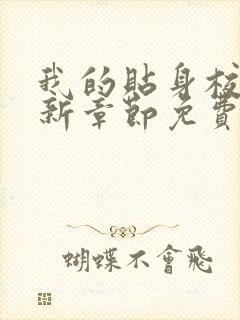 我的貼身校
新章節免費
蝴蝶不會飛